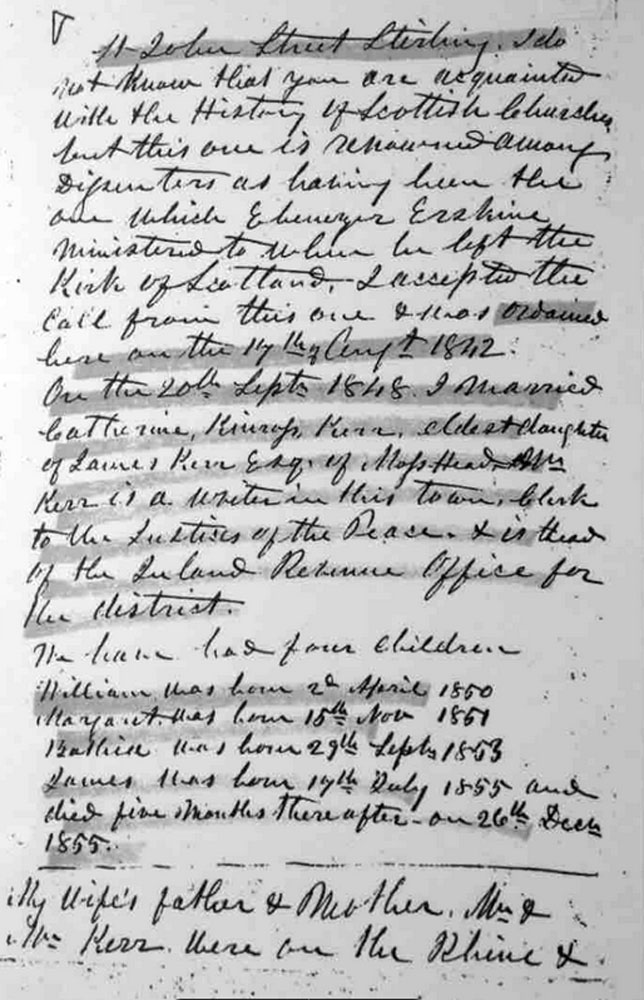 St John Street Stirling. I do
not know that you are acquainted
with the History of Scottish Churches
but this one is renowned among
Dissenters as having been the
one which Ebenezer Erskine
ministered to when he left the
Kirk of Scotland. I accepted the
Call from this one & was ordained
here on the 17th of Augt 1842.
On the 20th Septr 1848 I married
Catherine, Kinross, Kerr, eldest daughter
of James Kerr Esq. of Moss Head. Mr
Kerr is a writer in this town, Clerk
to the Justices of the Peace. & is head
of the Inland Revenue Office for
the district.
We have had four Children
William was born 2d April 1850
Margaret was born 15th Nov 1851
was born 29th Septr 1853
James was born 17th July 1855 and
died five months thereafter - on 26th Decr
1855.
My Wife's father & Mother, Mr &
Mrs Kerr were on the Rhine &